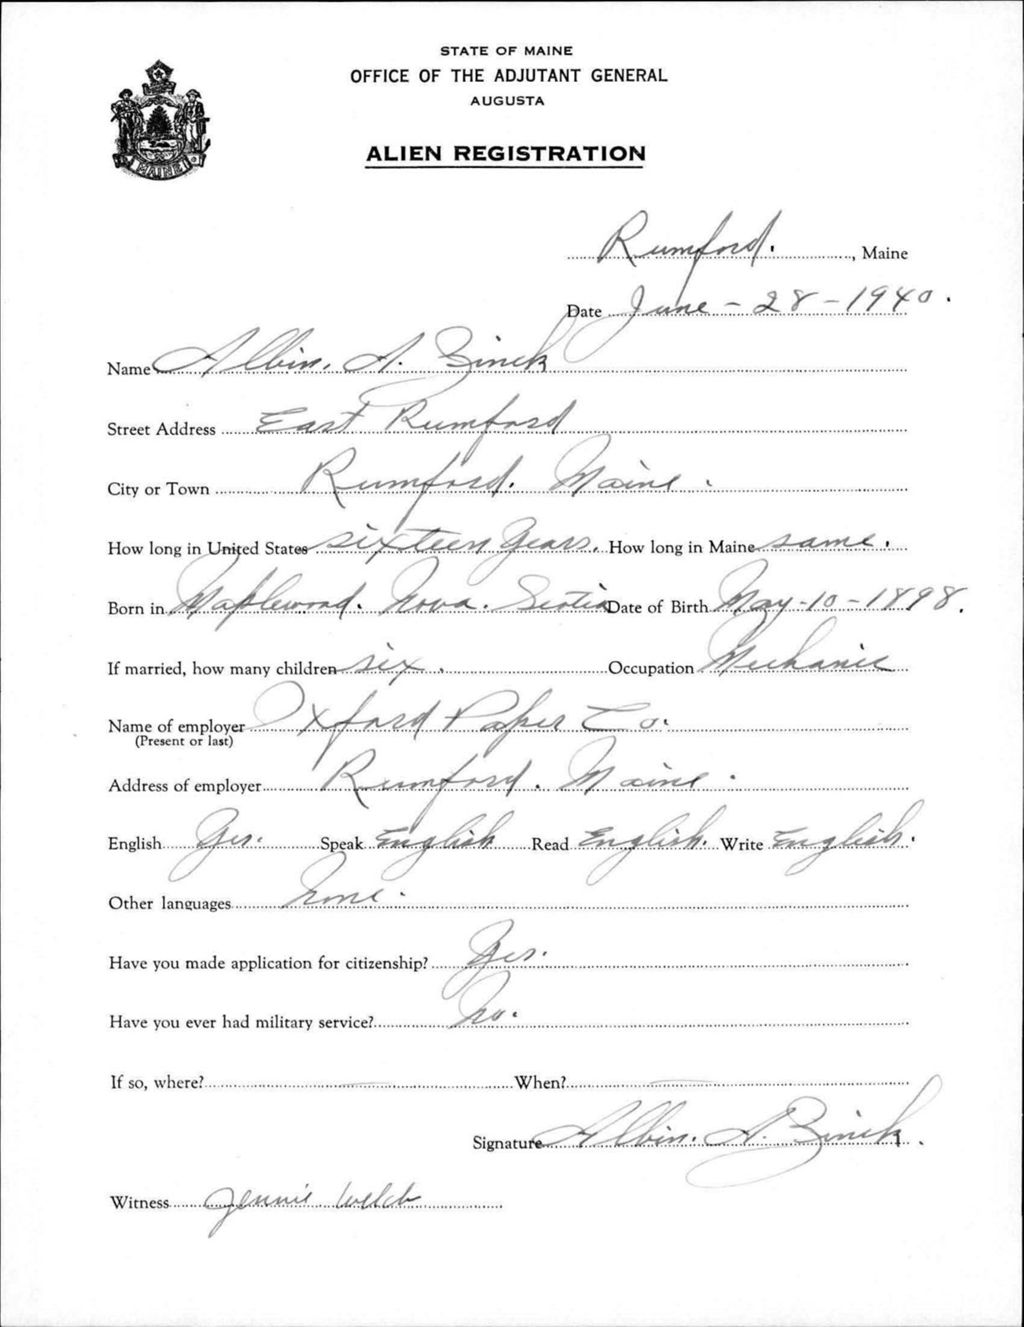 STATE OF MAINE
OFFICE OF THE ADJUTANT GENERAL
AUGUSTA
ALIEN REGISTRATION
MAINE
Rumford. , Maine
Date June - 28 - 1940.
Name Albin. A. Zinck
Street Address East Rumford
City or Town Rumford. Maine.
How long in United States sixteen Years. How long in Maine same.
Born in Maplewood. Nova. Scotia Date of Birth May - 10 - 1898.
If married, how many children six. Occupation Mechanic
Name of employer Oxford Paper Co.
(Present or last)
Address of employer Rumford. Maine.
English Yes. Speak English Read English. Write English.
Other languages None.
Have you made application for citizenship? Yes.
Have you ever had military service? No.
If so, where? — When? —
Signature Albin. A. Zinck.
Witness Jennie Welch